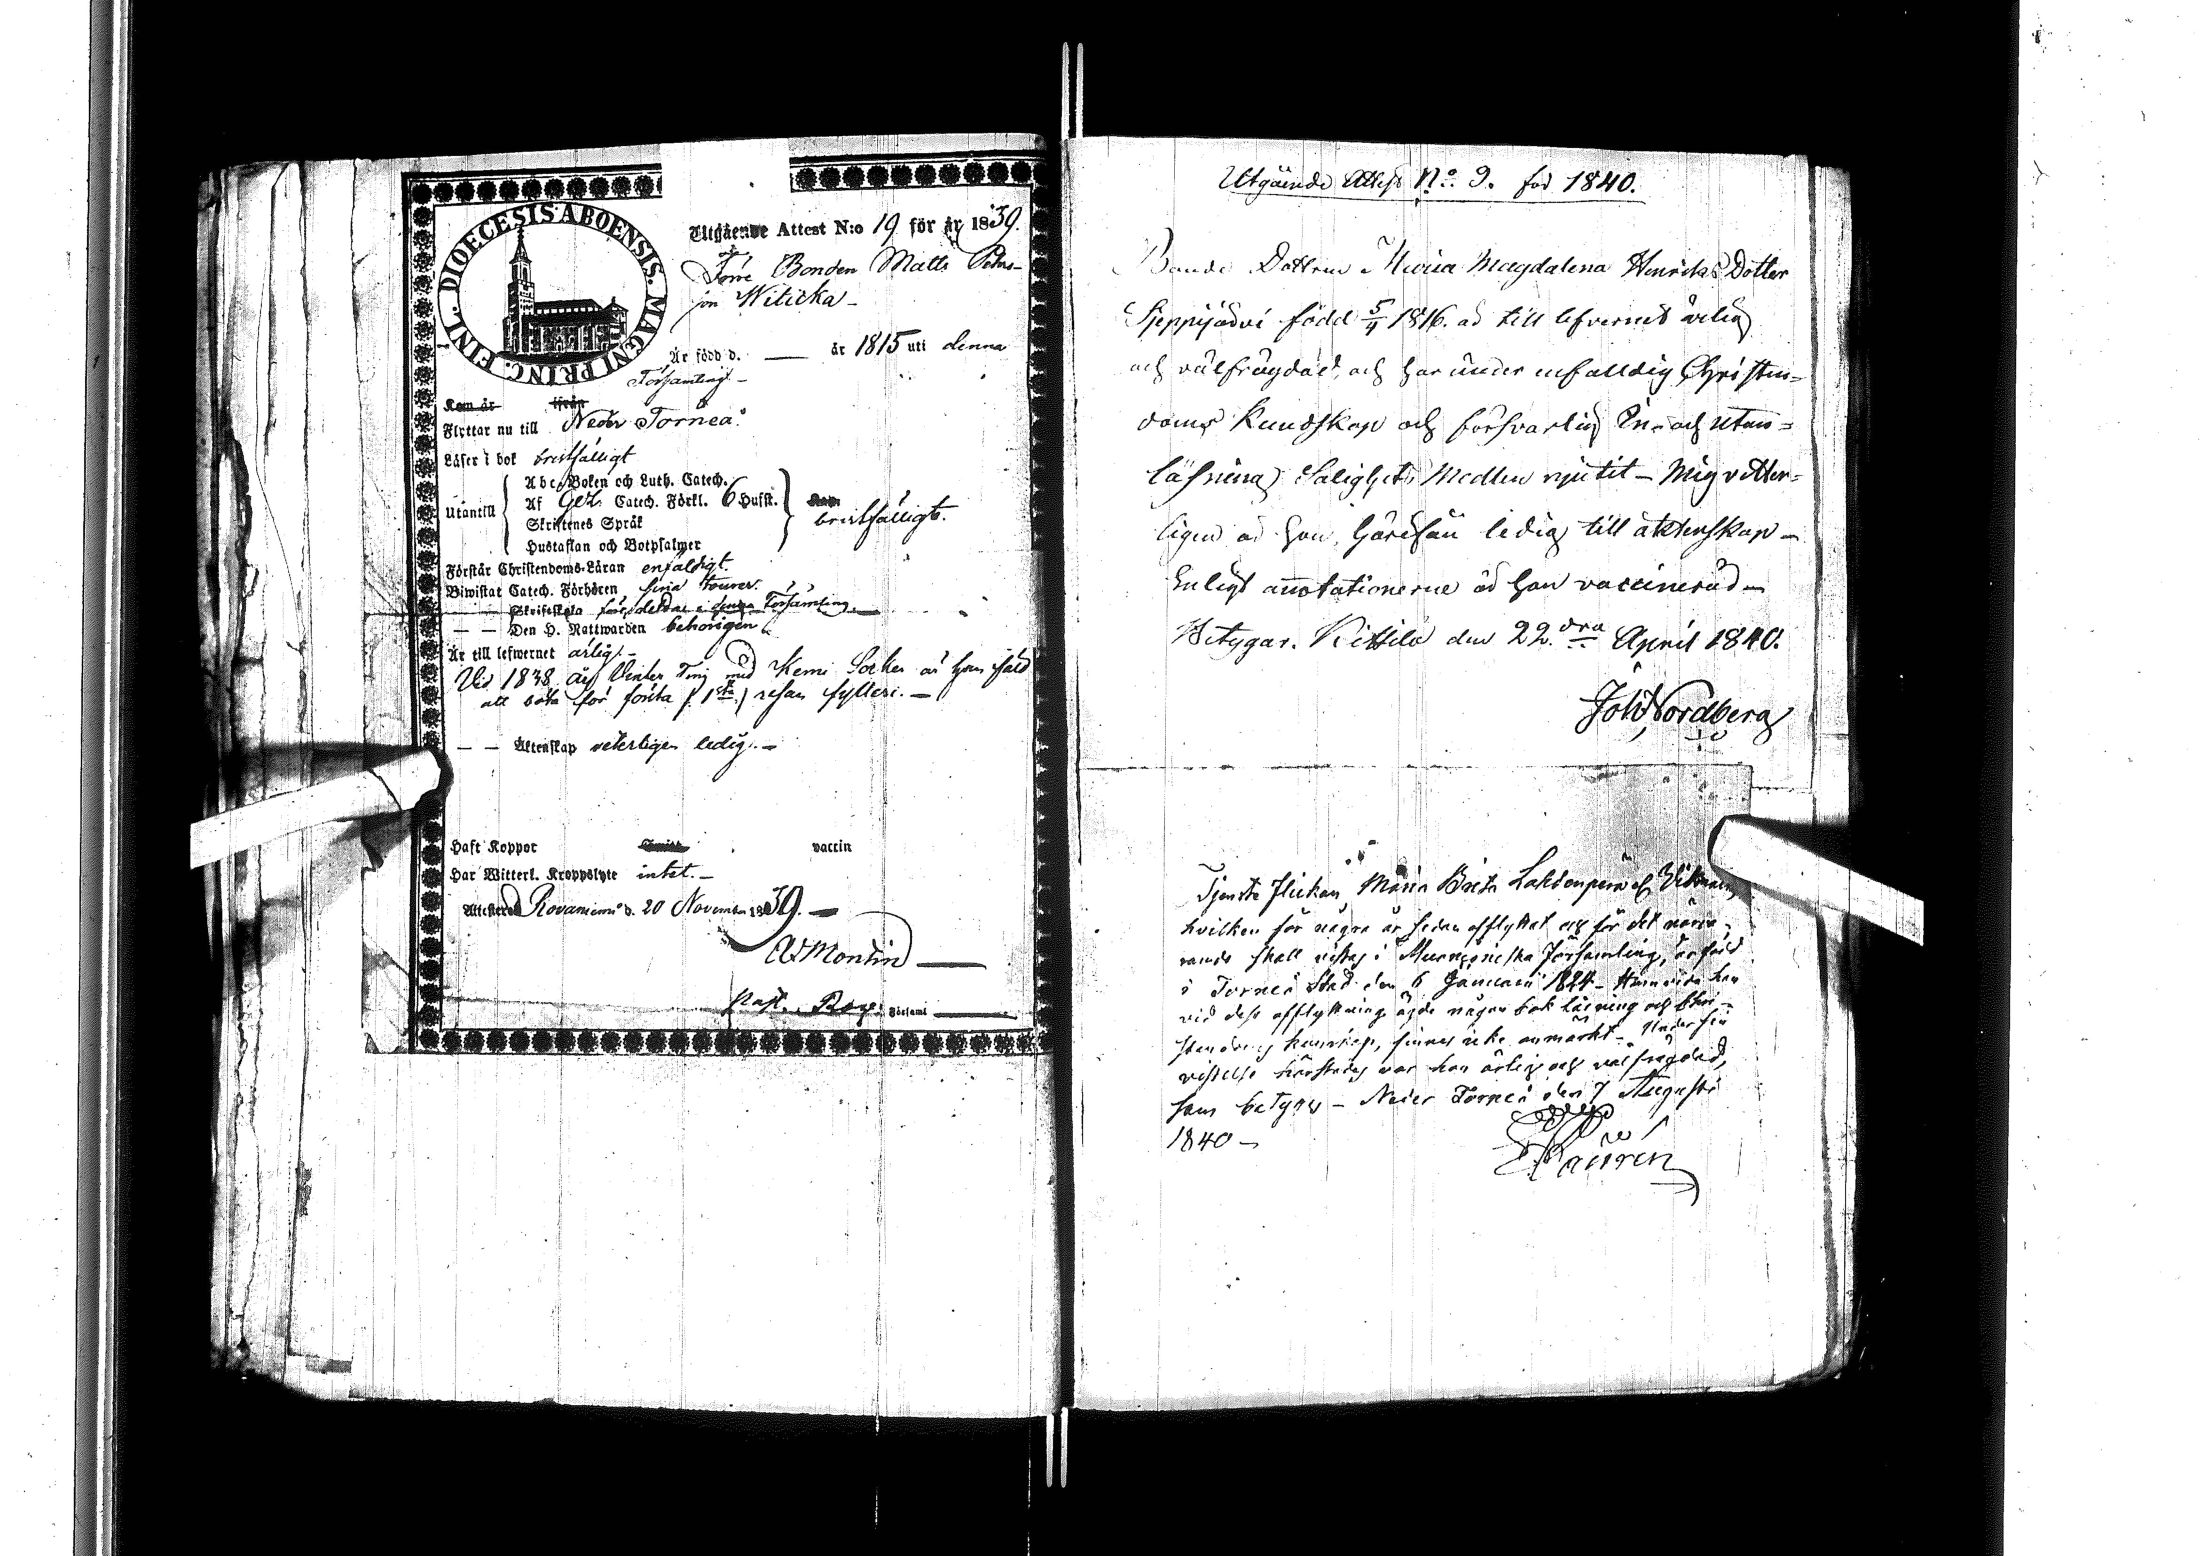 DIOECESIS ABOENSIS. MAGNI PRINC. FINL.
Utgående Attest N:o 19 för år 1839.
Förre Bonden Matts Peters-
son Witicka -
Är född d. — år 1815 uti denna
Församling -
Kom år ifrån
Flyttar nu till Neder Torneå.
Läser i bok bristfälligt
Utantill
Abc-Boken och Luth. Catech.
Af Gez. Catech. Förkl. 6 Hufst.
Skriftenes Språk
Hustaflan och Botpsalmer
bristfälligt.
Förstår Christendoms-Läran enfäldigt.
Biwistat Catech. Förhören sina tourer.
— — Skriftskola församling —
— — Den H. Nattwarden behörigen
Är till lefwernet ärlig. -
Vid 1838 års Vinter Ting med Kemi Socken är han fäld
att böta för första (1sta) resan fylleri. —
— — Äktenskap veterligen ledig. —
Haft Koppor vaccin
Har Witterl. Kroppslyte intet. -
Attesterad Rovaniemi d. 20 November 1839. —
Montin —
Past. Rov. Församl —
Utgående Attest No. 9. för 1840.
Bonde Dottren Maria Magdalena Henriks Dotter
Sjeppijärvi född 5/4 1816. är till lefvernet ärlig
och välfrägdad, och har under enfalldig Christen=
doms Kundskap och försvarlig In- och Utan=
läsning Salighets Medlen njutit - Mig vetter=
ligen är hon, härifrån ledig till äktenskap -
Enligt annotationerne är hon vaccinerad -
Betygar. Kittilä den 22dra April 1840.
Joh Nordberg
Tjenste Flickan Maria Brita
hvilken för några år sedan afflyttat och för det närva-
rande skall vistas i Muonioniska Församling, är född
i Torneå Stad den 6 Januarii 1824 - hon
vid dess afflyttning ägde någon bok läsning och Chri-
stendoms kunskap, finnes icke anmärkt - Under sin
vistelse härstädes var hon ärlig och välfrägdad,
som betygas - Neder Torneå den 7 Augusti
1840 -